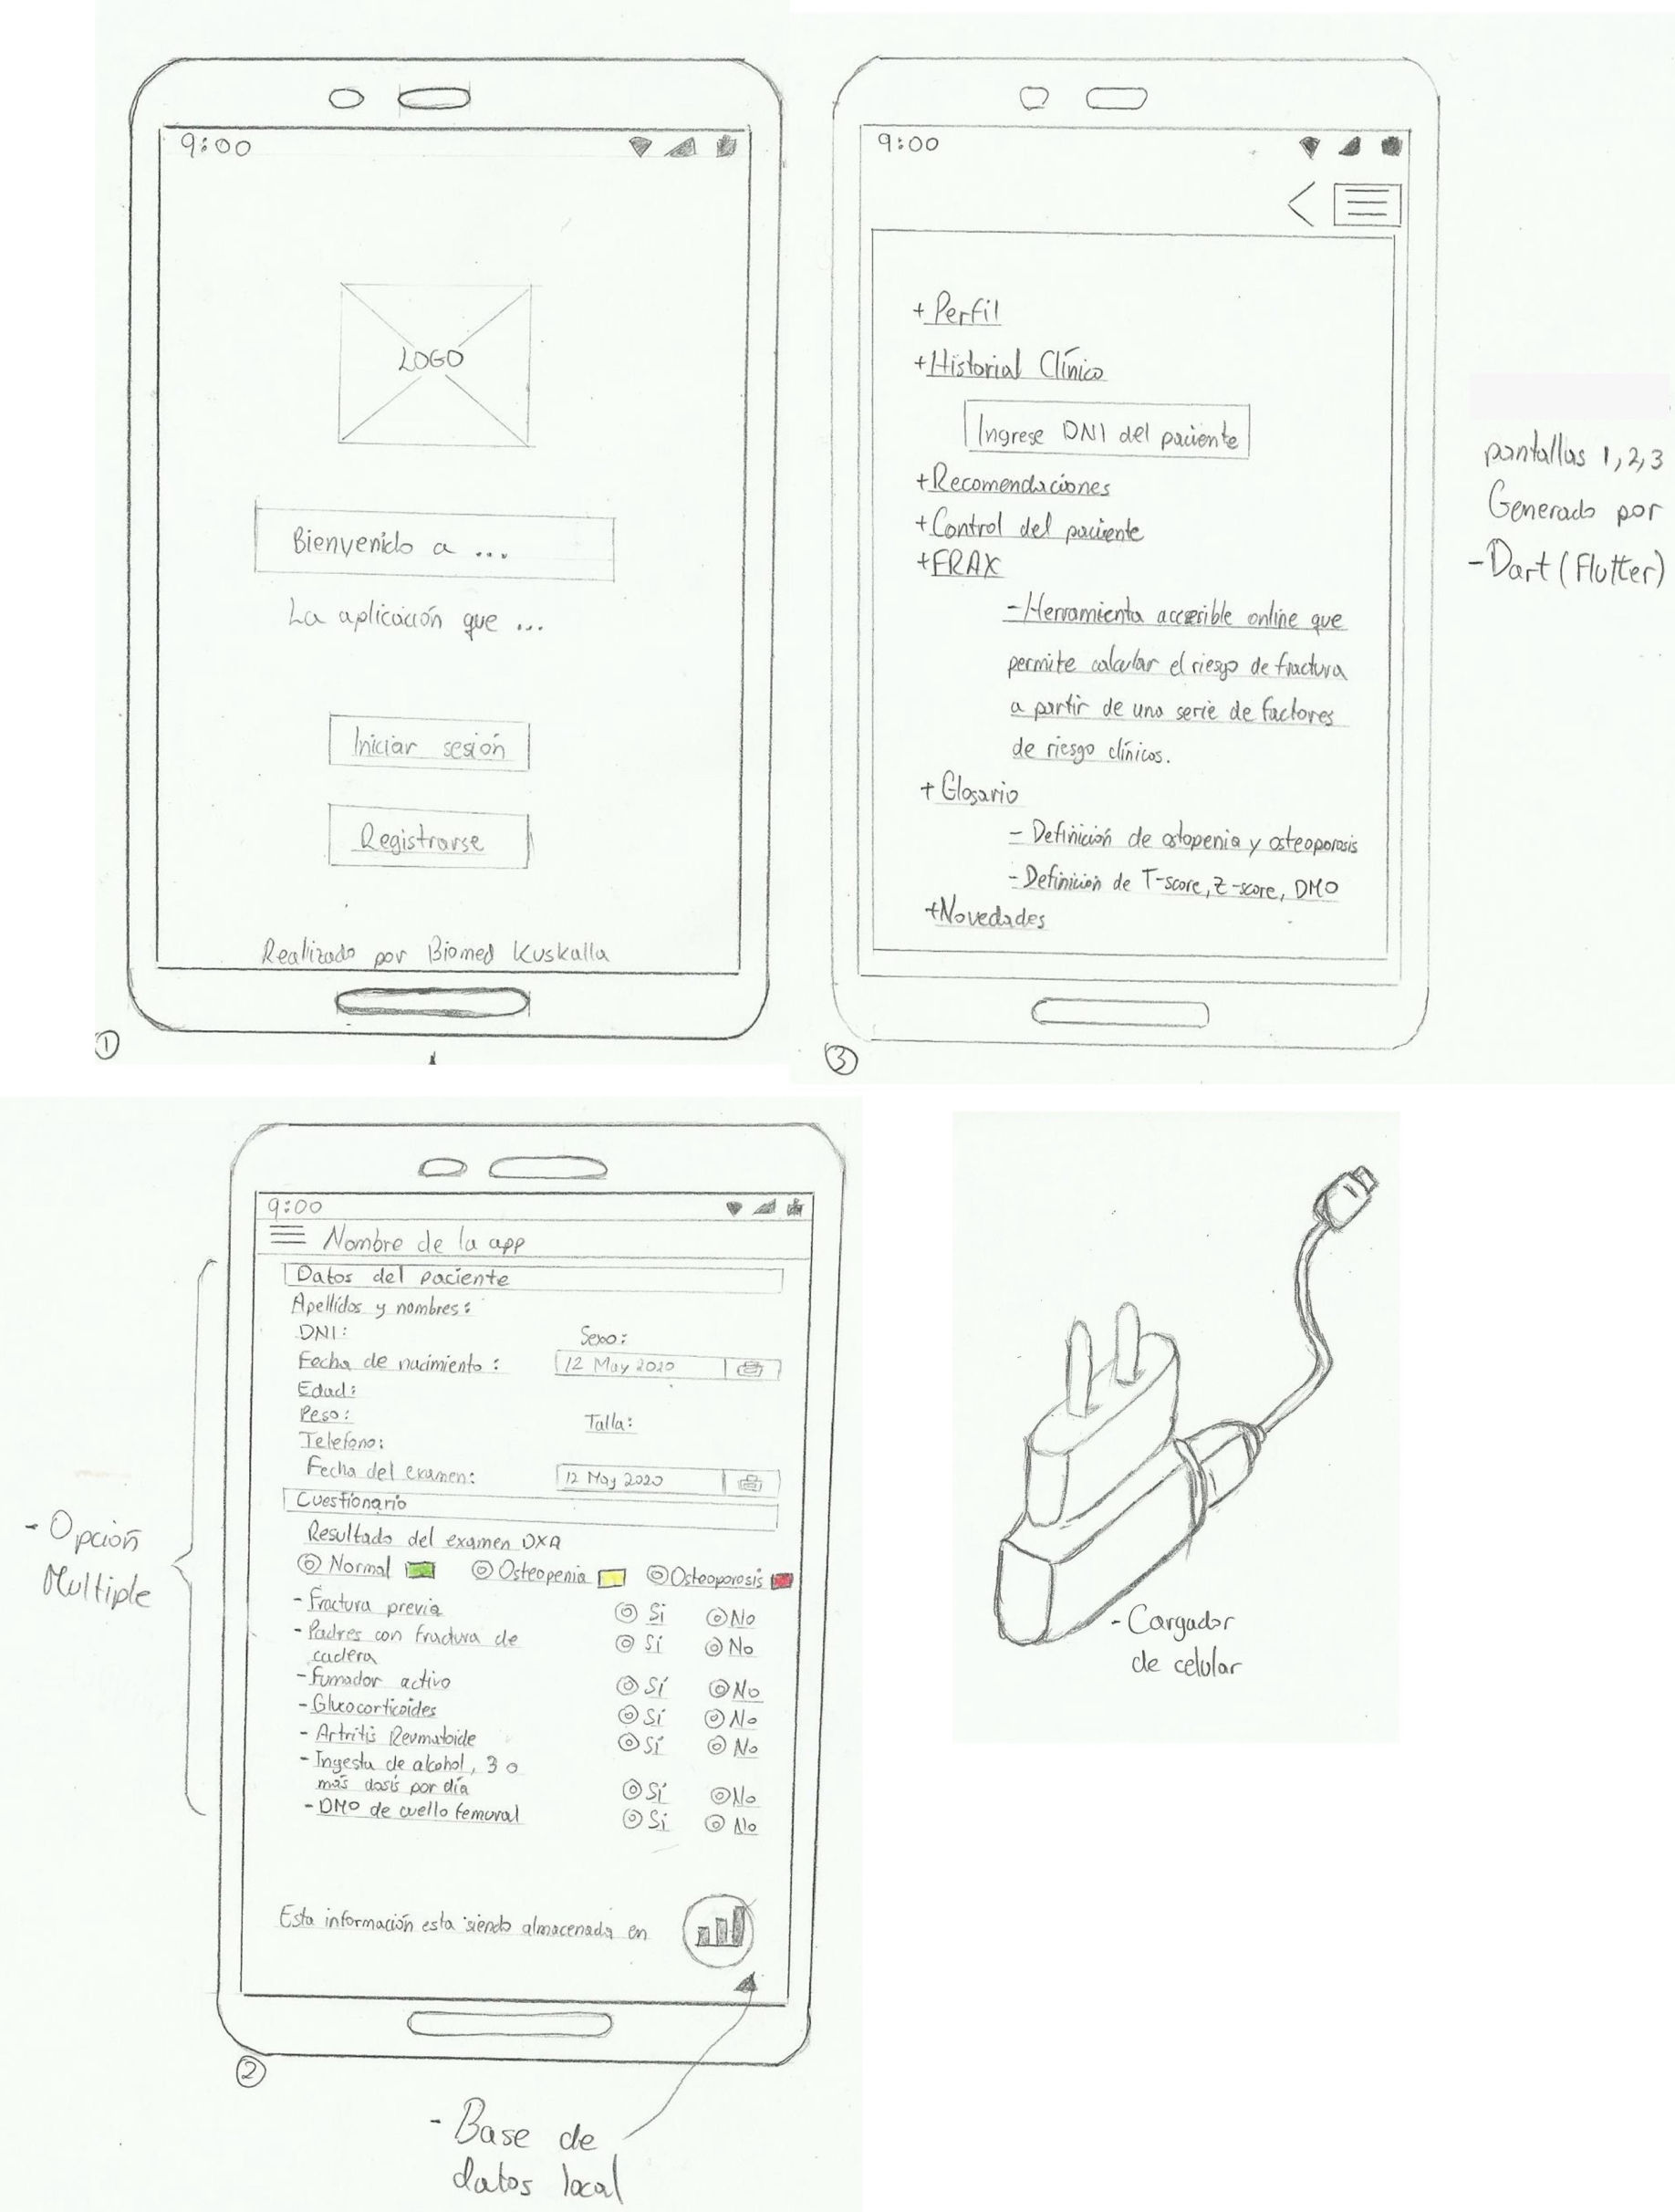 9:00
LOGO
Bienvenido a ...
La aplicación que ...
Iniciar sesión
Registrarse
Realizado por Biomed Kuskalla
1
9:00
+Perfil
+Historial Clínico
Ingrese DNI del paciente
+Recomendaciones
+Control del paciente
+FRAX
-Herramienta accesible online que
permite calcular el riesgo de fractura
a partir de una serie de factores
de riesgo clínicos.
+Glosario
- Definición de ostopenia y osteoporosis
- Definición de T-score, Z-score, DMO
+Novedades
3
pantallas 1,2,3
Generado por
-Dart (Flutter)
9:00
Nombre de la app
Datos del paciente
Apellidos y nombres:
DNI: Sexo:
Fecha de nacimiento: 12 May 2020
Edad:
Peso: Talla:
Telefono:
Fecha del examen: 12 May 2020
Cuestionario
Resultado del examen DXA
Normal Osteopenia Osteoporosis
- Fractura previa Si No
- Padres con fractura de Sí No
cadera
- Fumador activo Sí No
- Glucocorticoides Si No
- Artritis Reumatoide Sí No
- Ingesta de alcohol, 3 o
más dosis por día Sí No
- DMO de cuello femoral Si No
Esta información esta siendo almacenada en
2
- Opción
Multiple
- Base de
datos local
- Cargador
de celular